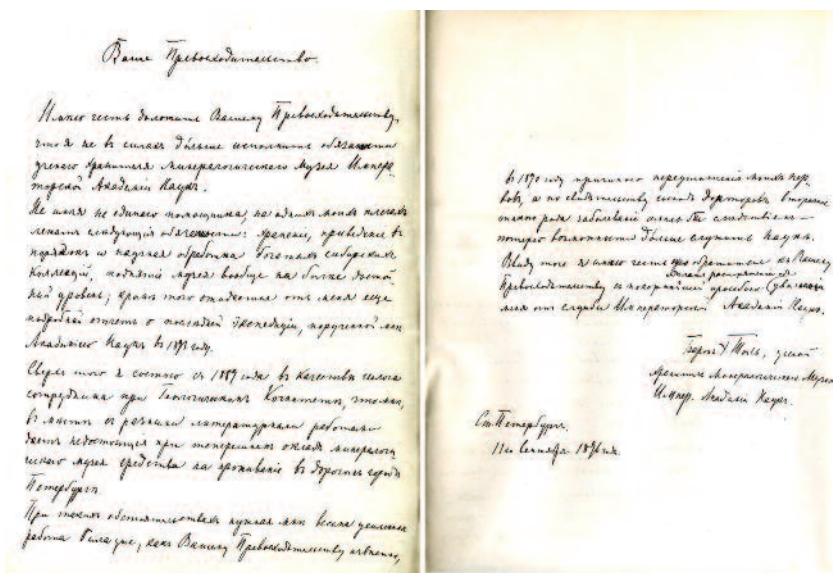 Ваше Превосходительство.
Имѣю честь доложить Вашему Превосходительству,
что я не въ силахъ дольше исполнять обязанности
ученаго хранителя минералогическаго музея Импера-
торской Академіи Наукъ.
Не имѣя не единаго помощника, на однихъ моихъ плечахъ
лежатъ слѣдующія обязанности: храненіе, приведеніе въ
порядокъ и научная обработка богатыхъ сибирскихъ
коллекцій, поднятіе музея вообще на болѣе достой-
ный уровень; кромѣ того ожидается отъ меня еще
подробный отчетъ о послѣдней экспедиціи, порученной мнѣ
Академіею Наукъ въ 1893 году.
Сверхъ того я состою съ 1889 года въ качествѣ геолога
сотрудника при Геологическомъ Комитетѣ, что мнѣ,
въ мѣстѣ съ разными литературными работами
даетъ недостающія при теперешнемъ окладѣ минералоги-
ческаго музея средства на проживаніе въ дорогомъ городѣ
Петербургѣ.
При такихъ обстоятельствахъ нужная мнѣ весьма усиленная
работа была уже, какъ Вашему Превосходительству извѣстно,
въ 1890 году причиною переутомленія моихъ нер-
вовъ, а по свидѣтельству докторовъ вторичное
такого рода заболѣваніе имѣло бы слѣдствіемъ —
потерю возможности дольше служить Наукѣ.
Ввиду того я имѣю честь обратиться къ Вашему
Превосходительству съ покорнѣйшей просьбою
меня отъ службы Императорской Академіи Наукъ.
Баронъ Э Толль, ученый
хранитель Минералогическаго Музея
Импер. Академіи Наукъ.
С.Петербургъ.
11го Сентября 1896 года.